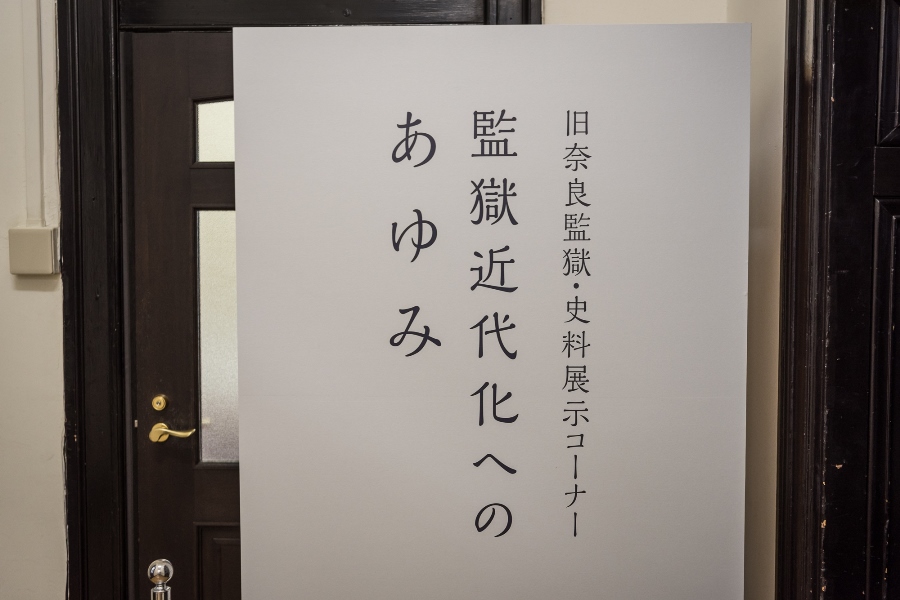 旧奈良監獄・史料展示コーナー
監獄近代化への
あゆみ